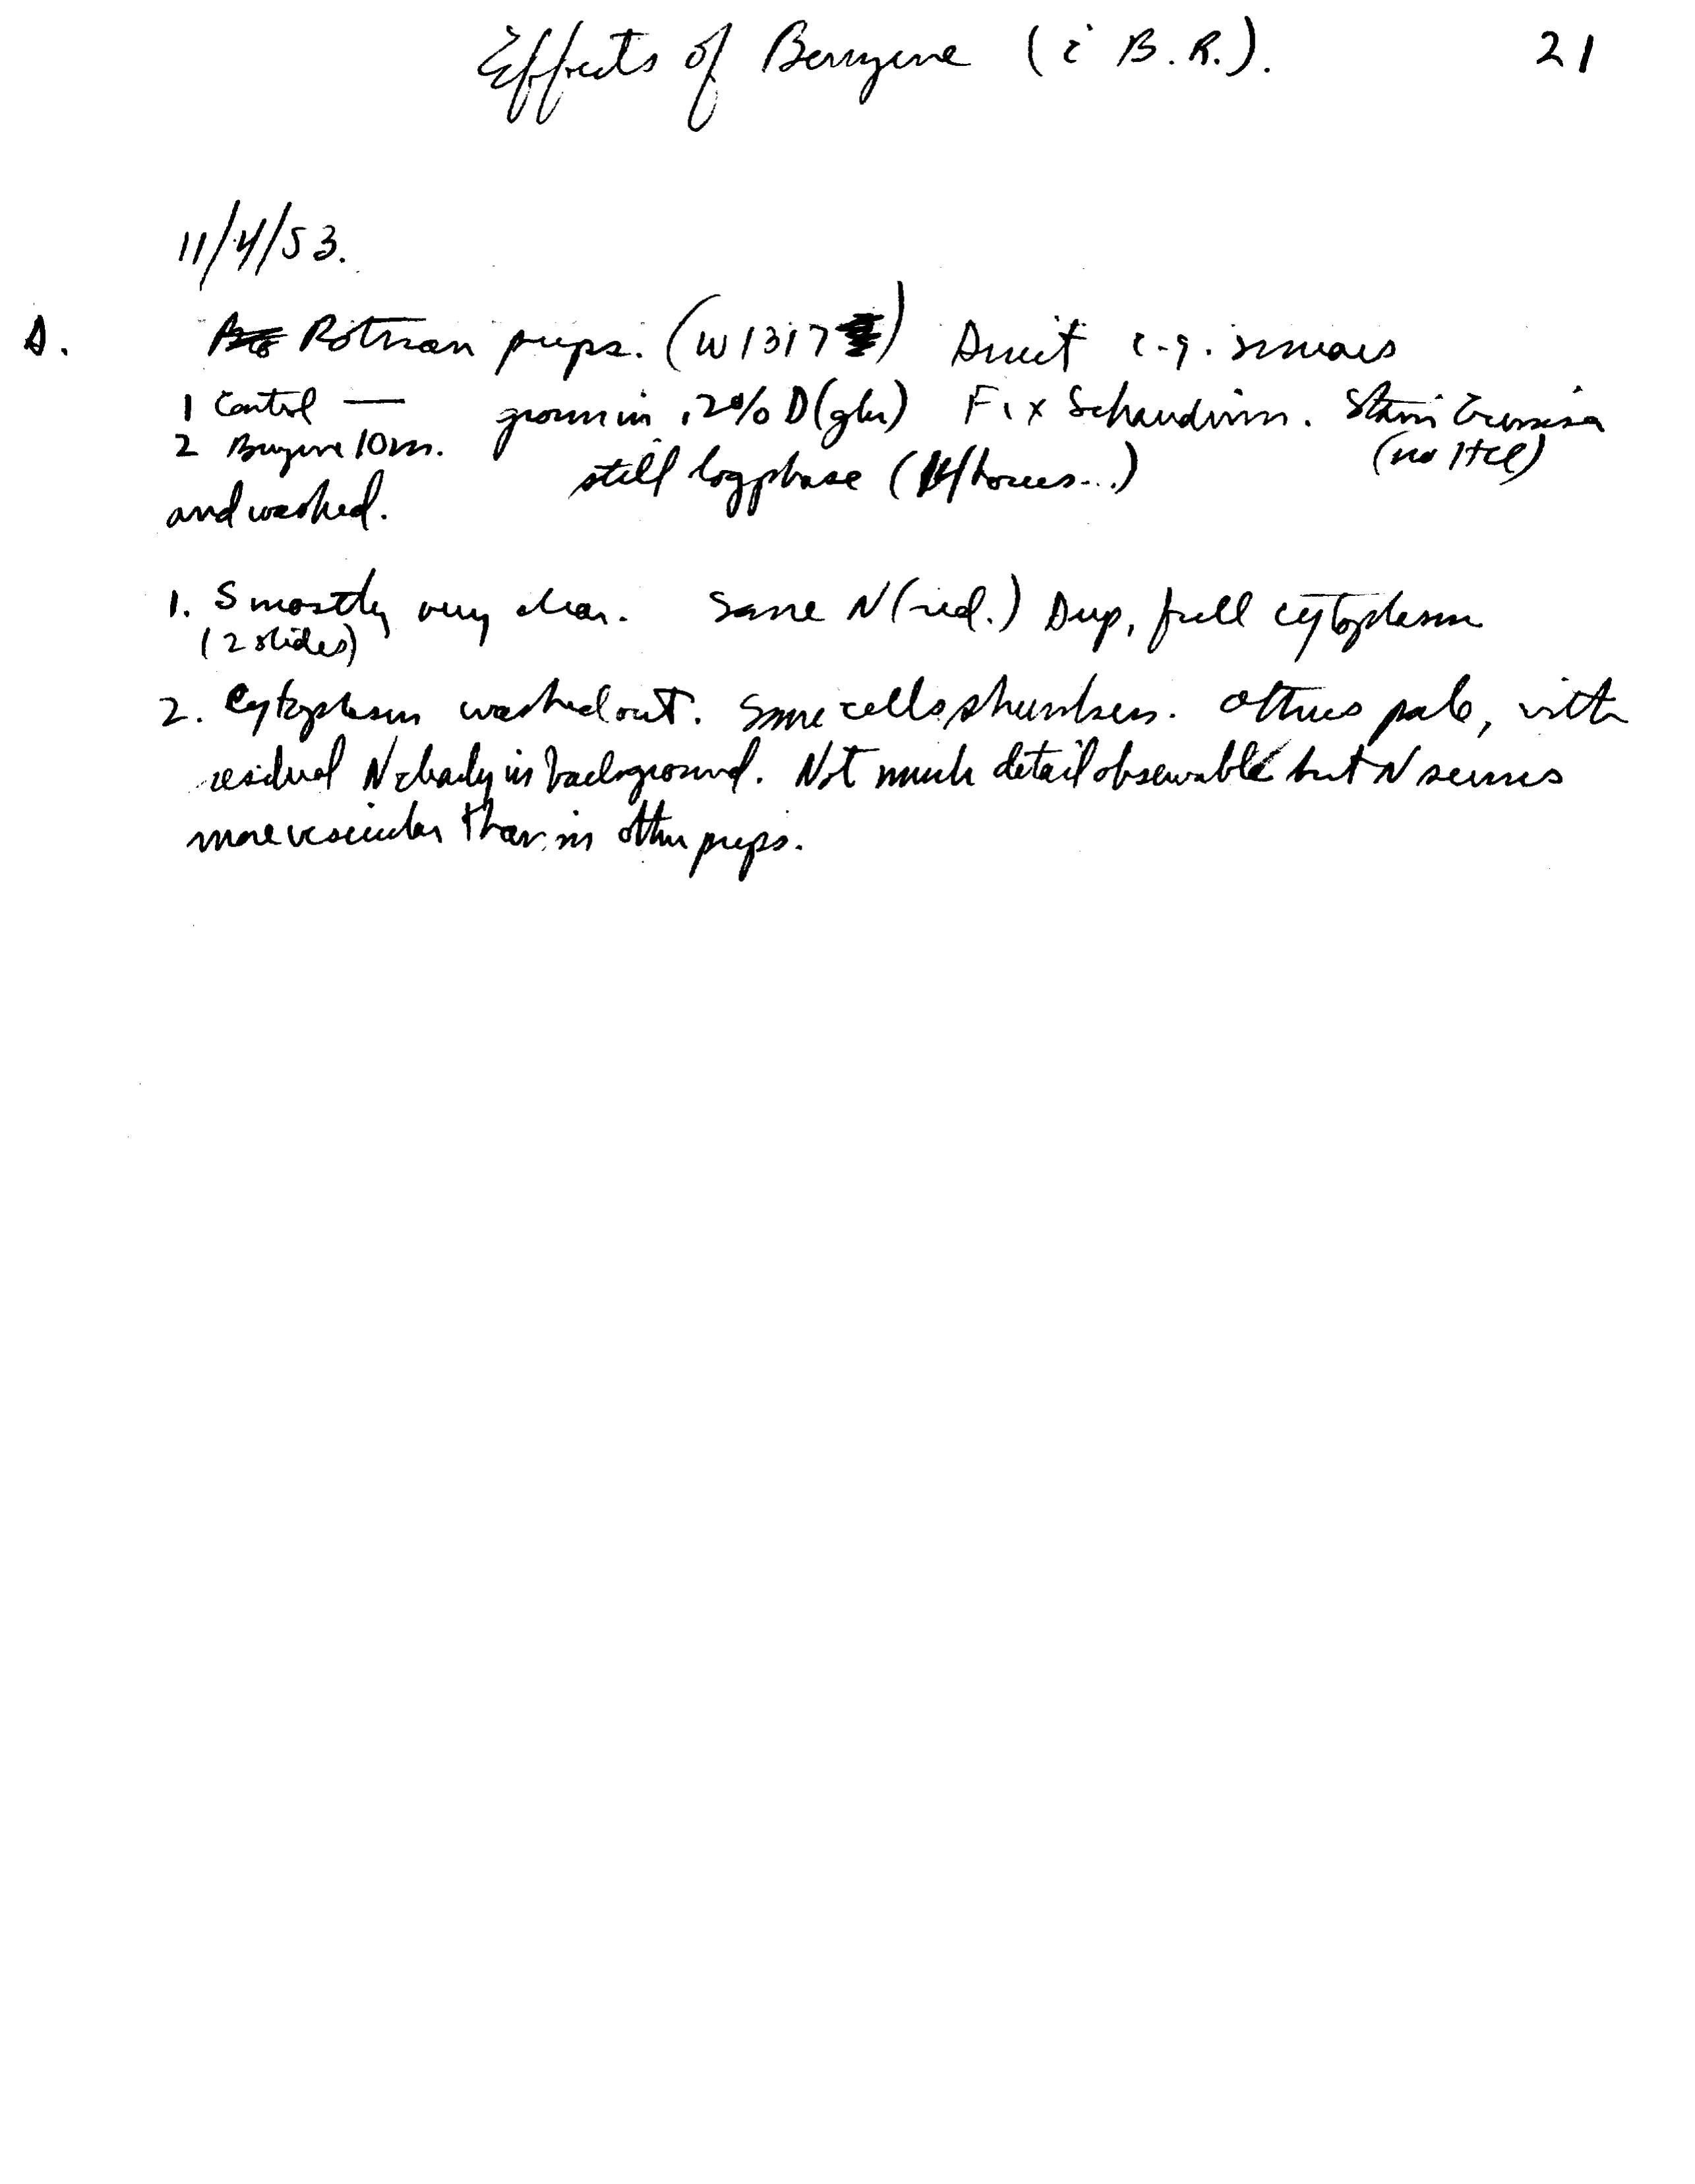 Effects of Benzene (c̄ B.R.). 21
11/4/53.
A. Rotman preps. (W1317) Direct c.g. smears
1 Control — grown in .2% D(glu) Fix Schaudinn. Stain Giemsa
2 Benzene 10m. still log phase (4 hours...) (no HCl)
and washed.
1. S mostly very clear. Some N (red.) Deep, full cytoplasm
(2 slides)
2. Cytoplasm washed out. Some cells shrunken. Others pale, with
residual N clearly in background. Not much detail observable but N seems
more vesicular than in other preps.